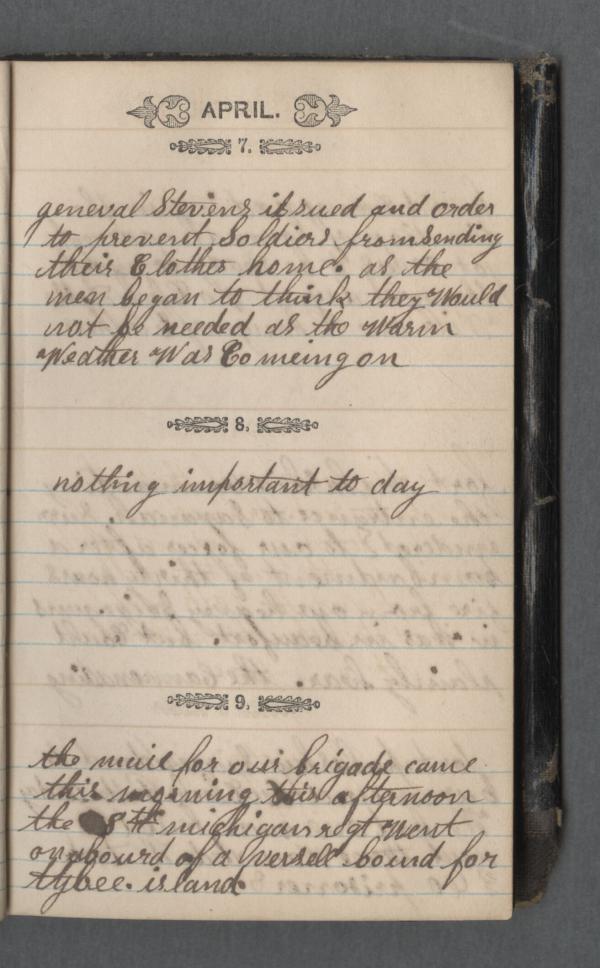 APRIL.
7.
general Stevens issued and order
to prevent Soldiers from Sending
their Clothes home. as the
men began to think they Would
not be needed as the Warm
Weather Was Comeing on
8.
nothing important to day
9.
the mail for our brigade came
this morning this afternoon
the 8th michigan regt Went
onabourd of a vessell bound for
tybee. island